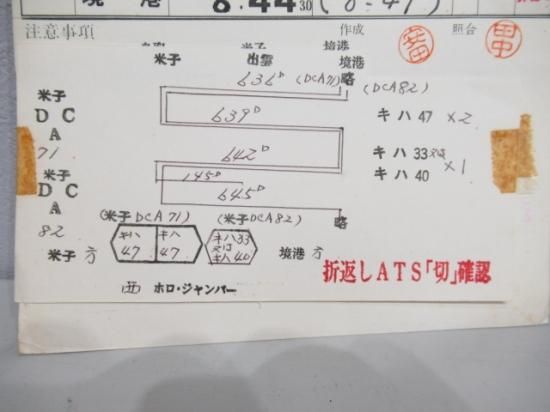 境港 8.44 30 (8.47)
注意事項 作成 照合
米子 出雲 境港
636D (DCA71) 略 (DCA82)
米子
DC
A
71
639D キハ 47 ×2
642D キハ 33又は
キハ 40 ×1
米子
DC
A
82
145D
645D
(米子DCA71) (米子DCA82) 略
米子方 キハ47 キハ47 キハ33又はキハ40 境港方
折返しATS「切」確認
西 ホロ・ジャンパー